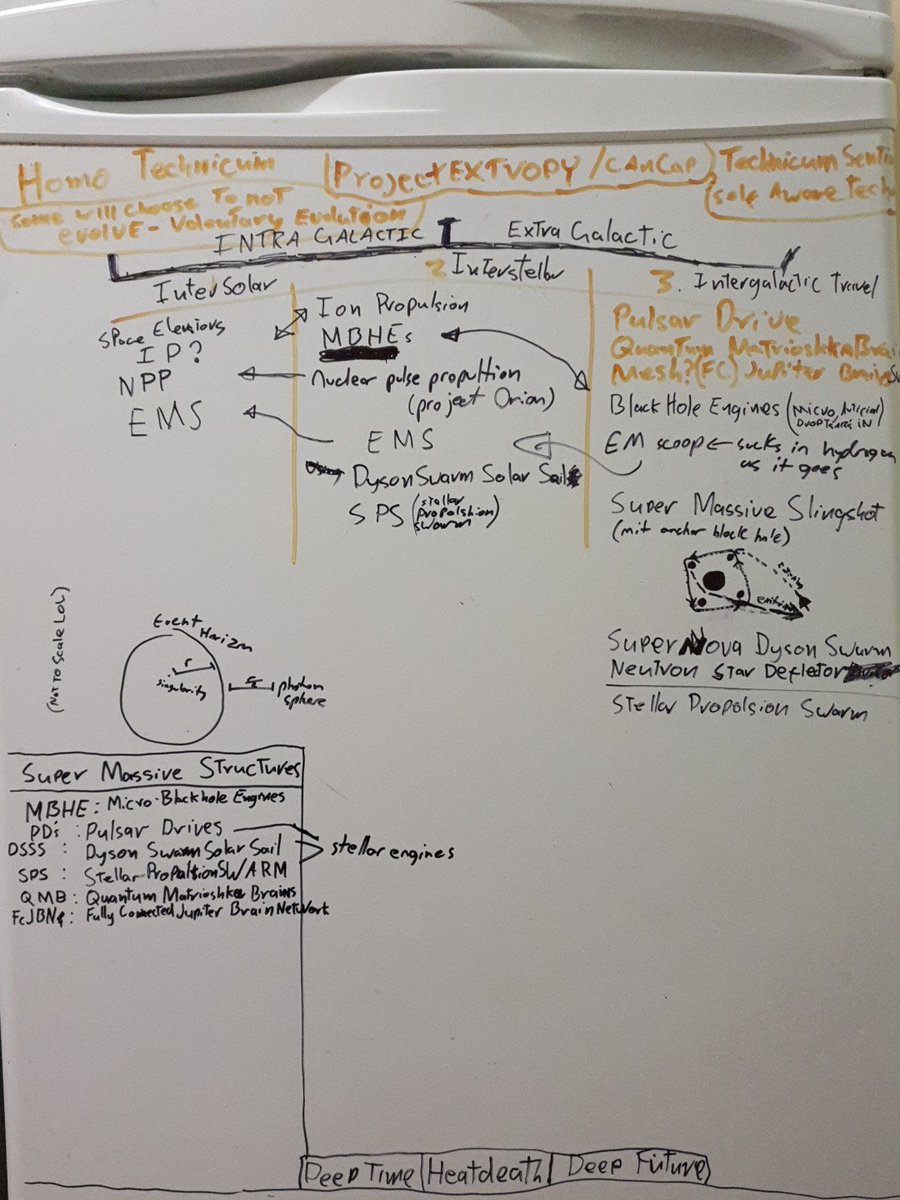 Homo Technicum
Project EXTVOPY / CAnCap
Technicum Senti
(self Aware Tech
Some will choose To not
evolvE - Voloutary Evolution
INTRA GALACTIC
Extra Galactic
InterSolar
2 Interstellar
3. Intergalactic Travel
Space Eleviors
IP?
NPP
EMS
Ion Propulsion
MBHEs
nuclear pulse propultion
(project Orion)
EMS
DysonSwarm Solar Sail
SPS (stellar
propolshion
swarm)
Pulsar Drive
Quantum MatrioshkaBrai
Mesh? (FC) Jupiter Brains
Black Hole Engines (Micro, Artificial
EM scoop ← sucks in hydrogen
as it goes
Super Massive Slingshot
(mit anchor black hole)
SuperNova Dyson Swarm
Neutron Star Defletor
Stellar Propolsion Swarm
(NOT To Scale LoL)
Event Horizon
r
singularity
photon
sphere
Super Massive Structures
MBHE: Micro-Blackhole Engines
PDs: Pulsar Drives
DSSS: Dyson Swarm Solar Sail
stellar engines
SPS: Stellar-PropaltionSWARM
QMB: Quantum Matrioshka Brains
FcJBN: Fully Connected Jupiter Brain Network
Deep Time Heatdeath Deep Future